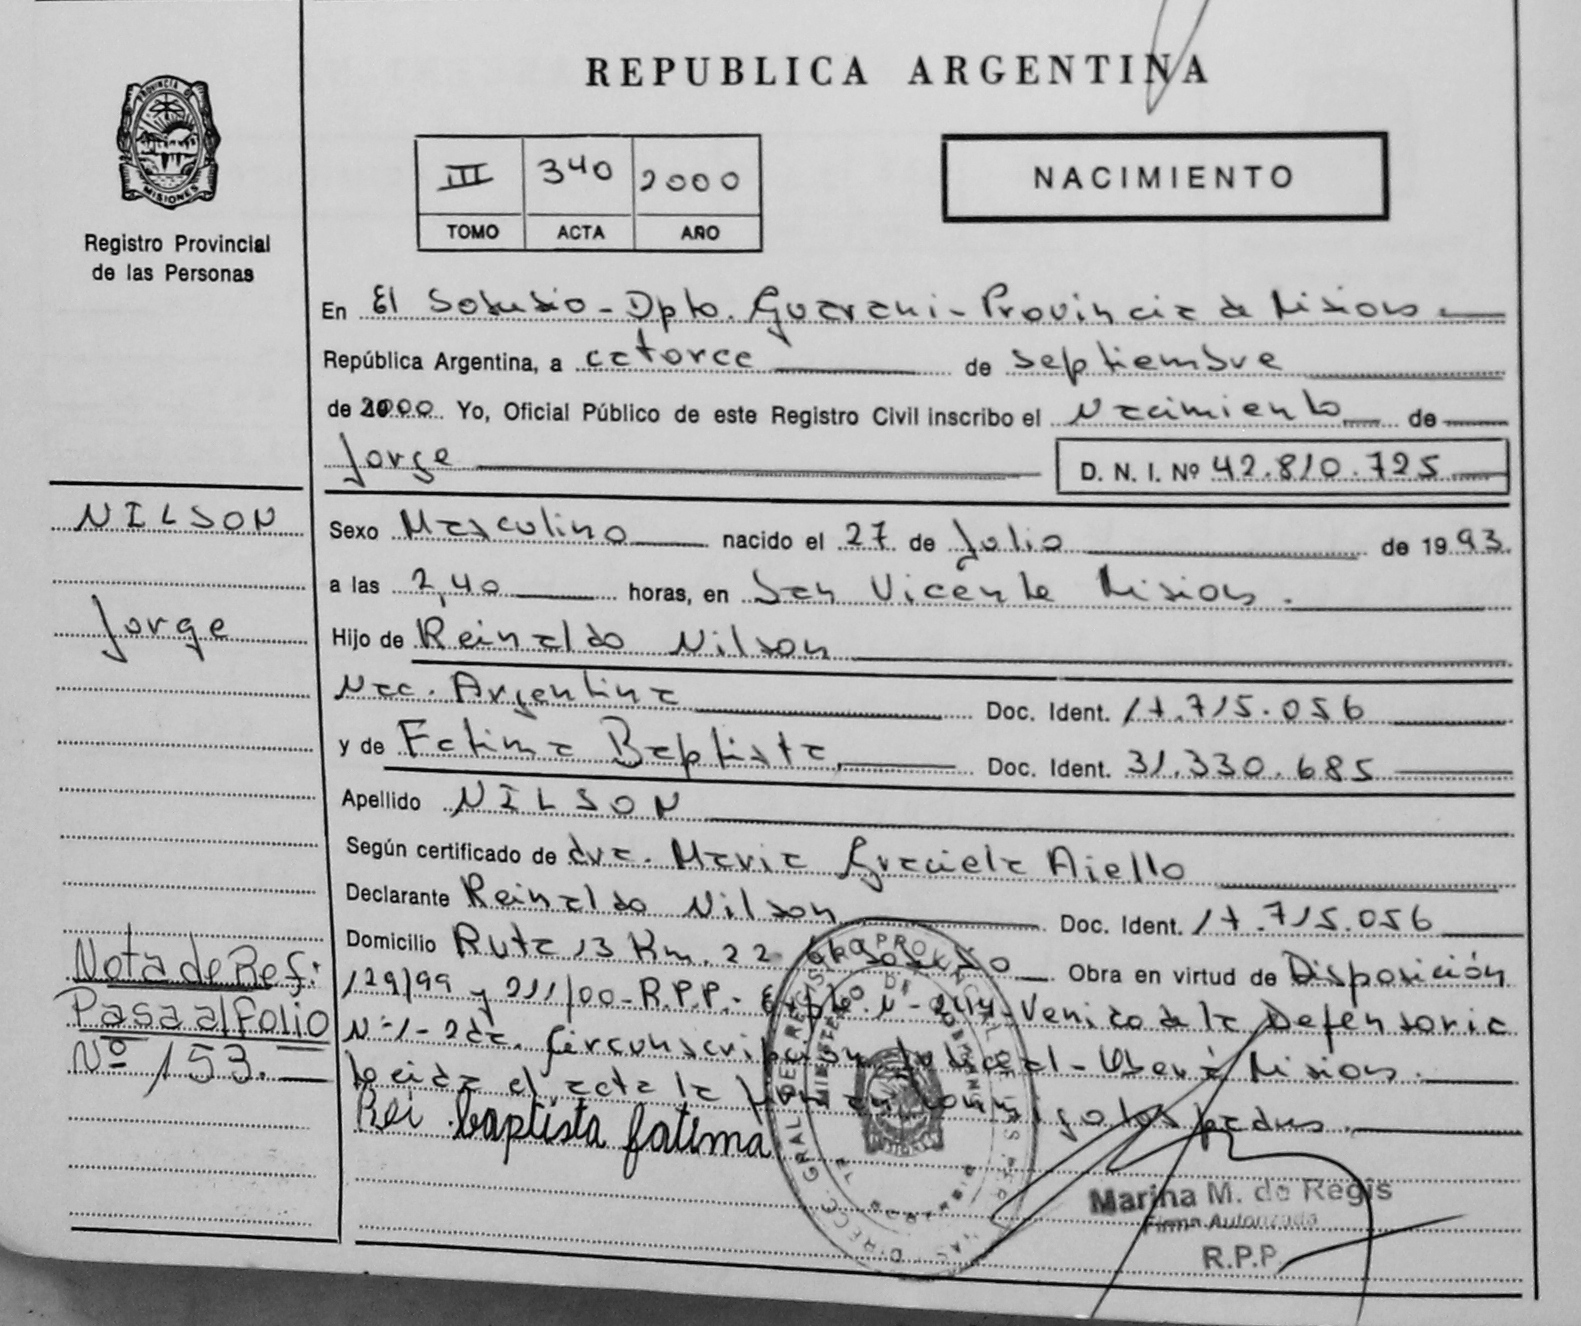 REPUBLICA ARGENTINA
PROVINCIA DE
MISIONES
Registro Provincial
de las Personas
III 340 2000
TOMO ACTA AÑO
NACIMIENTO
En El Soberbio - Dpto. Guarani - Provincia de Misiones
República Argentina, a catorce de septiembre
de 2000 Yo, Oficial Público de este Registro Civil inscribo el Nacimiento de
Jorge
D. N. I. Nº 42.810.725
NILSON
Jorge
Sexo Masculino nacido el 27 de Julio de 1993.
a las 2,40 horas, en San Vicente Misiones.
Hijo de Reinaldo Nilson
Nac. Argentina Doc. Ident. 17.715.056
y de Fatima Baptista Doc. Ident. 31.330.685
Apellido NILSON
Según certificado de dra. Maria Graciela Aiello
Declarante Reinaldo Nilson Doc. Ident. 17.715.056
Domicilio Ruta 13 Km. 22 Obra en virtud de Disposición
129/99 y 211/00 - R.P.P. - Expte. N - Venido de la Defensoria
Nº 1 - 2da. Circunscripción Judicial - Oberá Misiones.
el acta la conmigo los padres.
Rei baptista fatima
Nota de Ref:
Pasa al Folio
Nº 153.
Marina M. de Regis
Firma Autorizada
R.P.P.